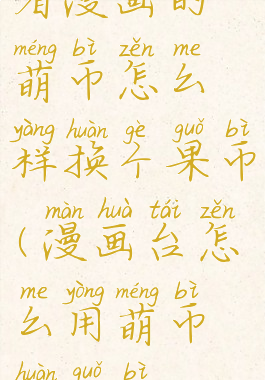 看漫画的
méng bì zěn me
萌币怎么
yàng huàn gè guǒ bì
样换个果币
màn huà tái zěn
(漫画台怎
me yòng méng bì
么用萌币
huàn guǒ bì